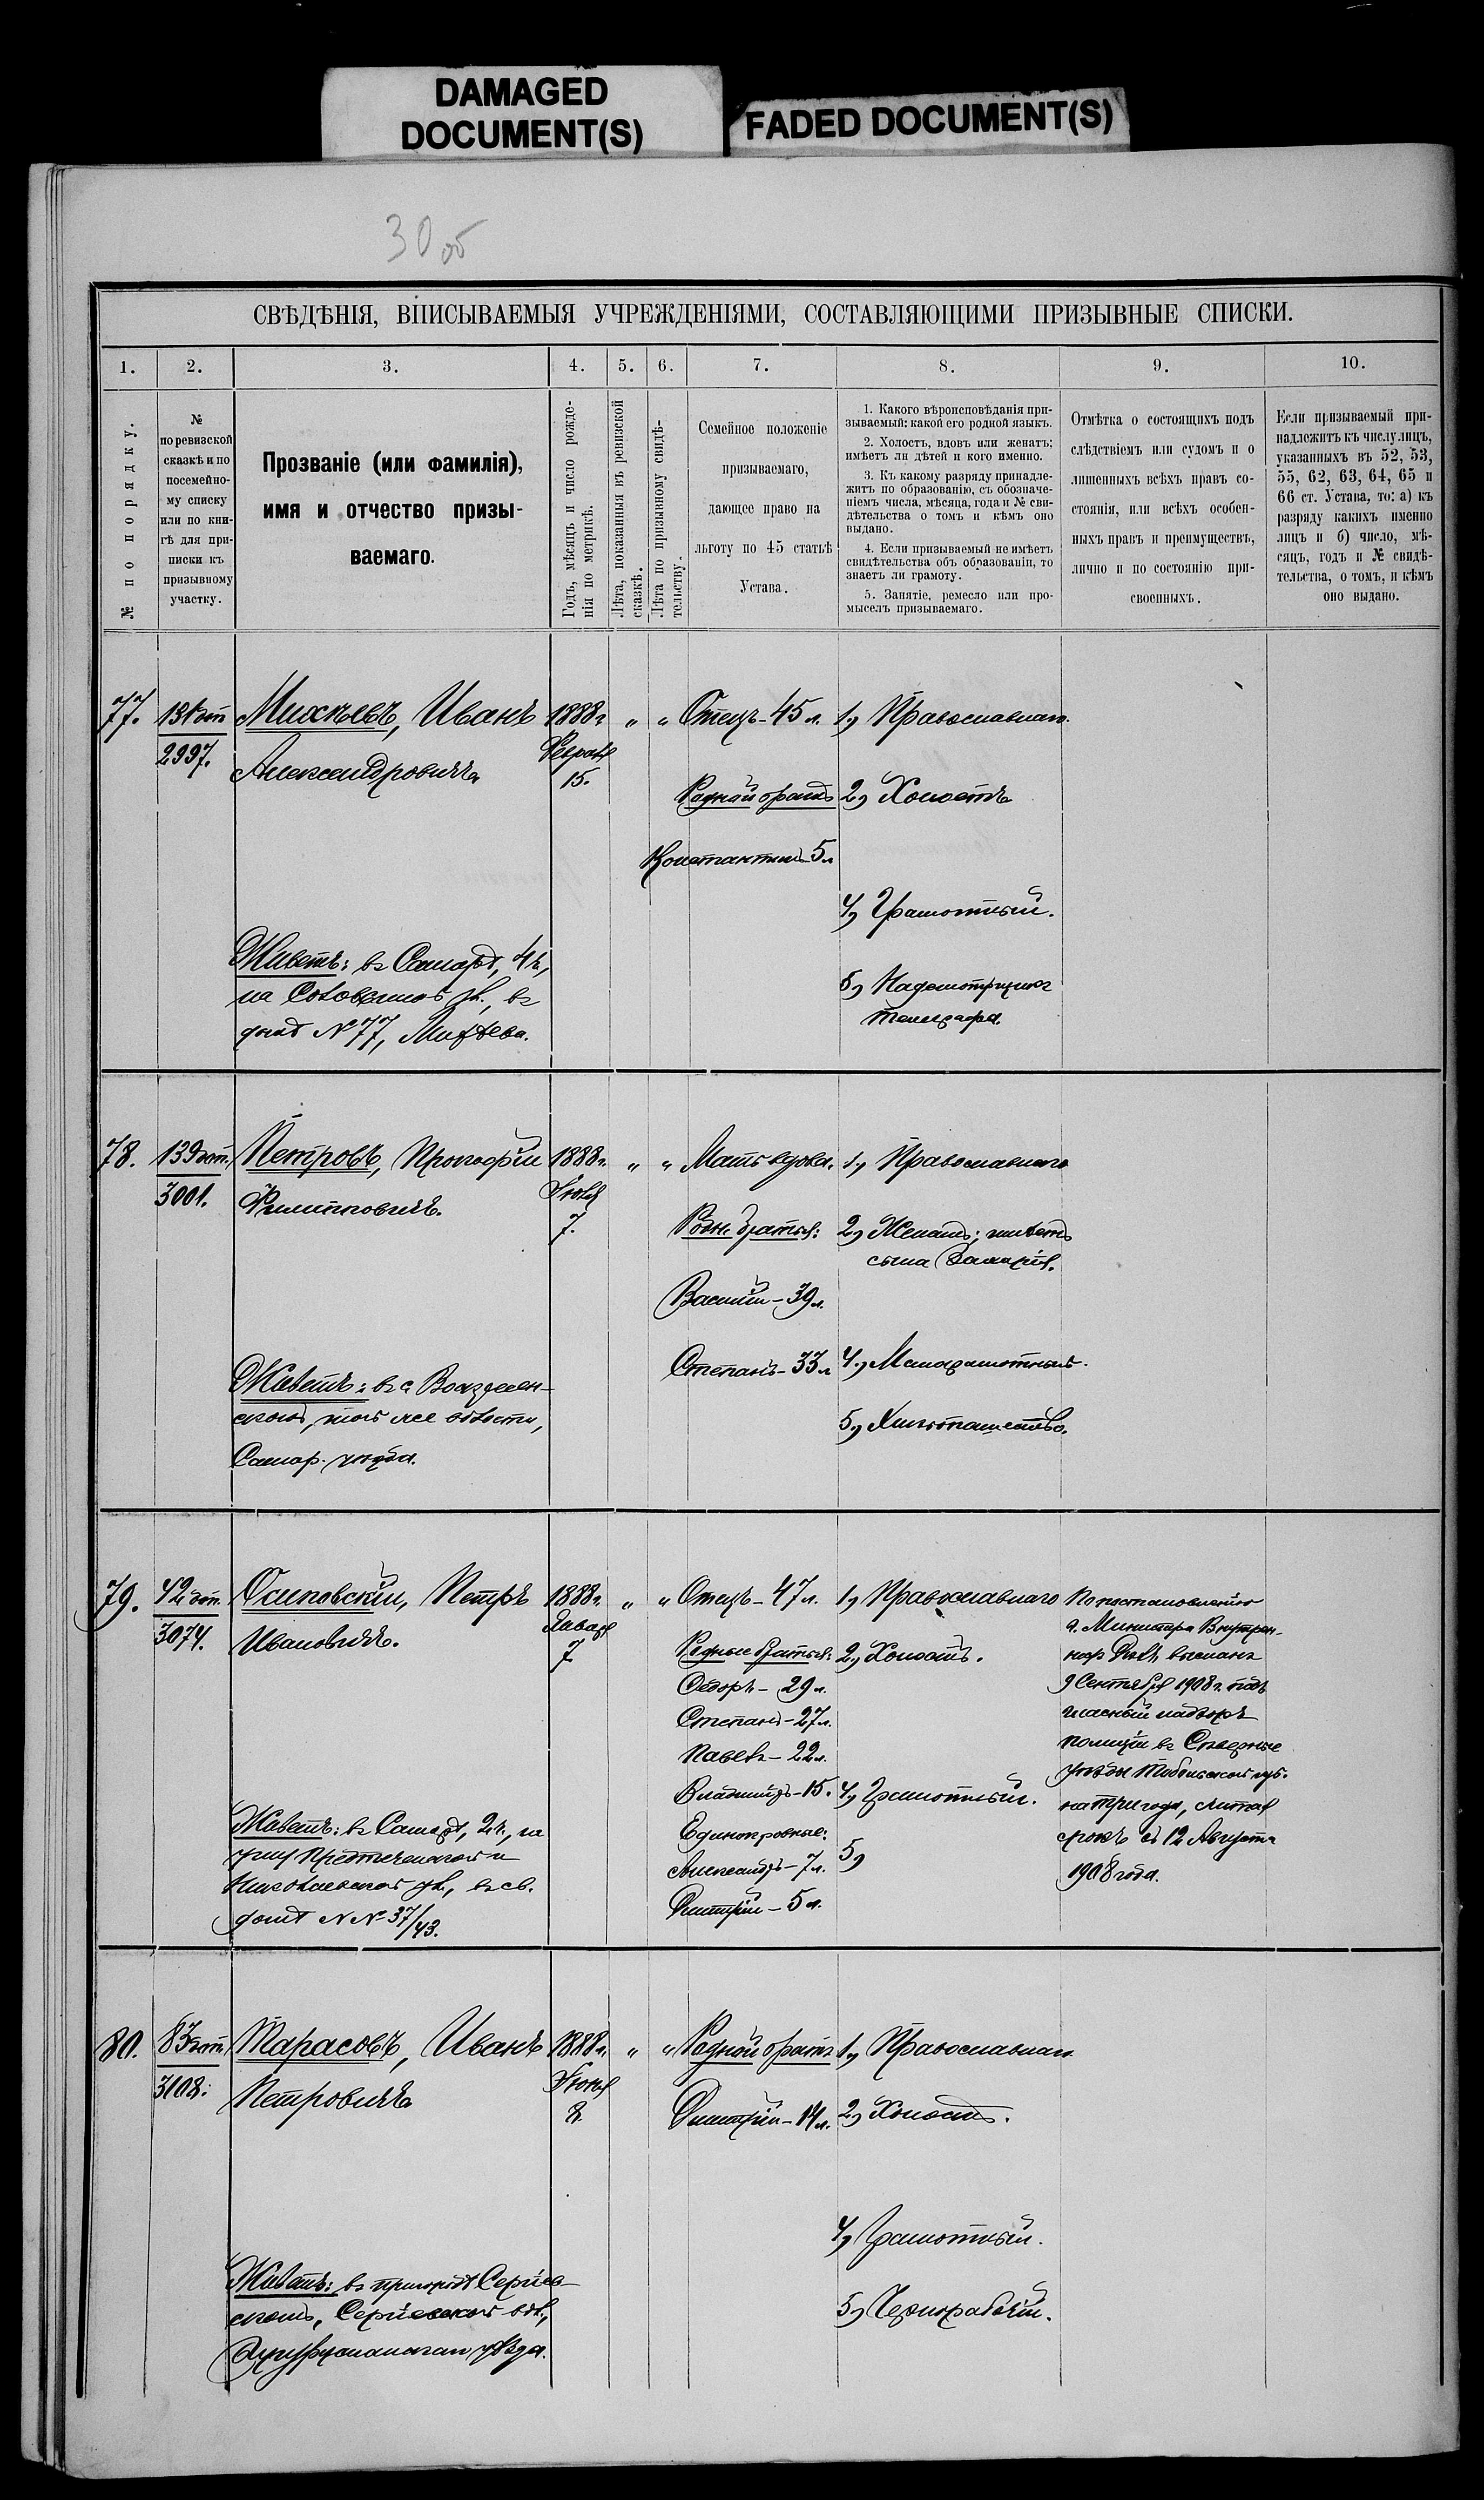 DAMAGED
DOCUMENT(S)
FADED DOCUMENT(S)
30 об
СВѢДѢНІЯ, ВПИСЫВАЕМЫЯ УЧРЕЖДЕНІЯМИ, СОСТАВЛЯЮЩИМИ ПРИЗЫВНЫЕ СПИСКИ.
1. 2. 3. 4. 5. 6. 7. 8. 9. 10.
№ по порядку.
№
по ревизской
сказкѣ и по
посемейно-
му списку
или по кни-
гѣ для при-
писки къ
призывному
участку.
Прозваніе (или фамилія),
имя и отчество призы-
ваемаго.
Годъ, мѣсяцъ и число рожде-
нія по метрикѣ.
Лѣта, показанныя въ ревизской
сказкѣ.
Лѣта по призывному свидѣ-
тельству.
Семейное положеніе
призываемаго,
дающее право на
льготу по 45 статьѣ
Устава.
1. Какого вѣроисповѣданія при-
зываемый: какой его родной языкъ.
2. Холостъ, вдовъ или женатъ;
имѣетъ ли дѣтей и кого именно.
3. Къ какому разряду принадле-
житъ по образованію, съ обозначе-
ніемъ числа, мѣсяца, года и № сви-
дѣтельства о томъ и кѣмъ оно
выдано.
4. Если призываемый не имѣетъ
свидѣтельства объ образованіи, то
знаетъ ли грамоту.
5. Занятіе, ремесло или про-
мыселъ призываемаго.
Отмѣтка о состоящихъ подъ
слѣдствіемъ или судомъ и о
лишенныхъ всѣхъ правъ со-
стоянія, или всѣхъ особен-
ныхъ правъ и преимуществъ,
лично и по состоянію при-
своенныхъ.
Если призываемый при-
надлежитъ къ числу лицъ,
указанныхъ въ 52, 53,
55, 62, 63, 64, 65 и
66 ст. Устава, то: а) къ
разряду какихъ именно
лицъ и б) число, мѣ-
сяцъ, годъ и № свидѣ-
тельства, о томъ, и кѣмъ
оно выдано.
77.
2997.
Михѣевъ, Иванъ
Александровичъ
1888 г.
Февраля
15.
" "
Отецъ - 45 л.
Родной братъ
Константинъ - 5 л
1) Православнаго.
2) Холостъ
4) Грамотный.
5) Надсмотрщикъ
телеграфа.
Живетъ: въ Самарѣ, 4 ч.,
на Соловьиной ул., въ
домѣ № 77, Михѣева.
78.
3001.
Петровъ, Прокофій
Филипповичъ.
1888 г.
Іюля
7.
" "
Мать вдова.
Родн. братья:
Василій - 39 л.
Степанъ - 33 л
1) Православнаго
2) Женатъ; имѣетъ
сына
4) Малограмотный.
5) Хлѣбопашество.
Живетъ: въ с. Воздвижен-
скомъ, той же волости,
Самар. уѣзда.
79.
3074.
Осиповскій, Петръ
Ивановичъ.
1888 г.
Января
7
" "
Отецъ - 47 л.
Родные братья:
Ѳедоръ - 29 л.
Степанъ - 27 л.
Павелъ - 22 л.
Владиміръ - 15.
Единокровные:
Александръ - 7 л.
Димитрій - 5 л.
1) Православнаго
2) Холостъ.
4) Грамотный.
5)
По постановленію
г. Министра Внутрен-
нихъ Дѣлъ высланъ
9 Сентября 1908 г. подъ
гласный надзоръ
полиціи въ Сѣверные
уѣзды Тобольской губ.
на три года, считая
срокъ съ 12 Августа
1908 года.
Живетъ: въ Самарѣ, 2 ч., на
углу Предтеченской и
Николаевской ул., въ св.
домѣ № № 37/43.
80.
3108.
Тарасовъ, Иванъ
Петровичъ
1888 г.
Іюня
8.
" "
Родной братъ
Димитрій - 14 л.
1) Православнаго
2) Холостъ.
4) Грамотный.
5) Чернорабочій.
Живетъ: въ пригородѣ Сергіев-
скомъ, Сергіевской вол.,
Бугурусланскаго уѣзда.